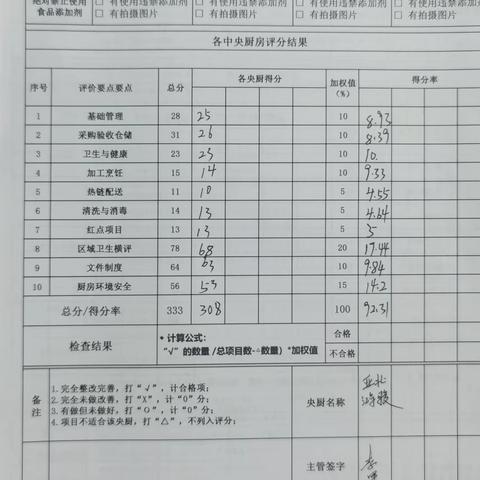 绝对禁止使用 □ 有使用违禁添加剂 □ 有使用违禁添加剂 □ 有使用违禁添加剂
食品添加剂 □ 有拍摄图片 □ 有拍摄图片 □ 有拍摄图片
各中央厨房评分结果
序号 评价要点要点 总分 各央厨得分 加权值（%） 得分率
1 基础管理 28 25 10 8.93
2 采购验收仓储 31 26 10 8.39
3 卫生与健康 23 23 10 10.
4 加工烹饪 15 14 10 9.33
5 热链配送 11 10 5 4.55
6 清洗与消毒 14 13 5 4.64
7 红点项目 13 13 5 5
8 区域卫生横评 78 68 20 17.44
9 文件制度 64 63 10 9.84
10 厨房环境安全 56 53 15 14.2
总分/得分率 333 308 100 92.31
检查结果 * 计算公式： 合格
“√”的数量 /总项目数-÷数量）*加权值 不合格
备注
1.完全整改完善，打“√”，计合格项；
2.完全未做改善，打“X”，计“0”分；
3.有做但未做好，打“O”，计“0”分；
4.项目不适合该央厨，打“△”，不列入评分；
央厨名称
主管签字